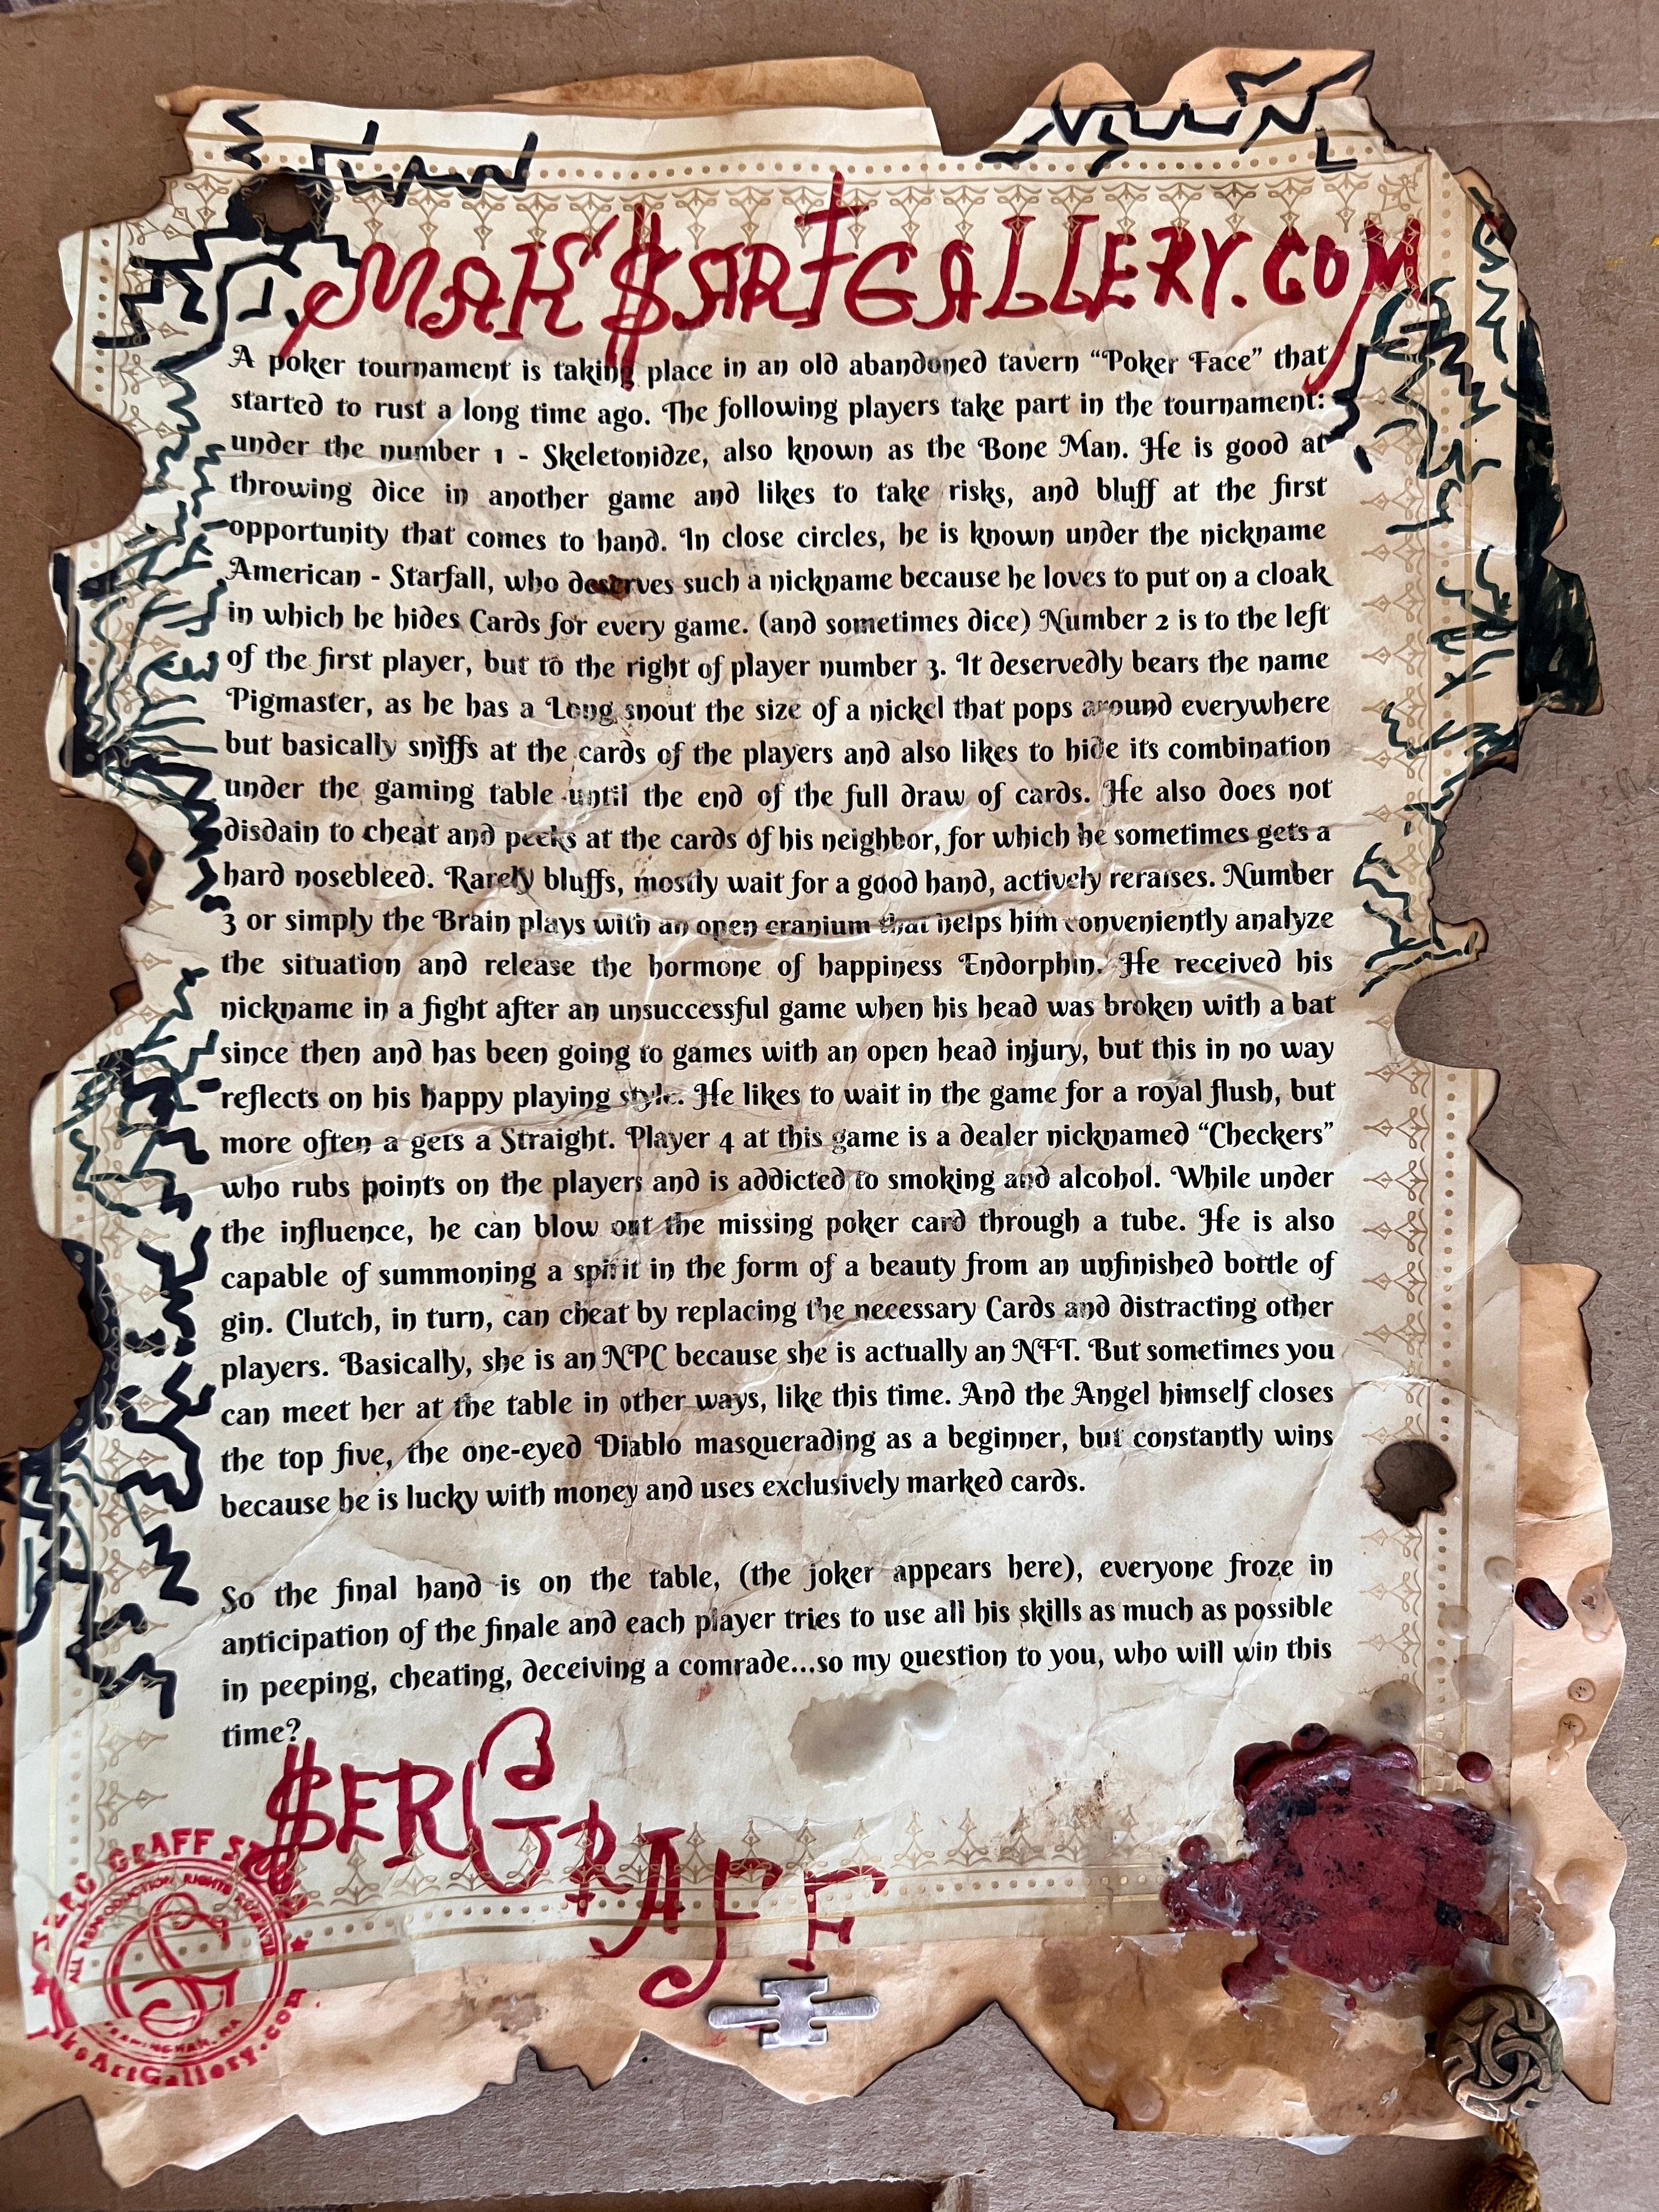 MAK'$ARTGALLERY.COM
A poker tournament is taking place in an old abandoned tavern “Poker Face” that
started to rust a long time ago. The following players take part in the tournament:
under the number 1 - Skeletonidze, also known as the Bone Man. He is good at
throwing dice in another game and likes to take risks, and bluff at the first
opportunity that comes to hand. In close circles, he is known under the nickname
American - Starfall, who deserves such a nickname because he loves to put on a cloak
in which he hides Cards for every game. (and sometimes dice) Number 2 is to the left
of the first player, but to the right of player number 3. It deservedly bears the name
Pigmaster, as he has a Long snout the size of a nickel that pops around everywhere
but basically sniffs at the cards of the players and also likes to hide its combination
under the gaming table until the end of the full draw of cards. He also does not
disdain to cheat and peeks at the cards of his neighbor, for which he sometimes gets a
hard nosebleed. Rarely bluffs, mostly wait for a good hand, actively reraises. Number
3 or simply the Brain plays with an open cranium that helps him conveniently analyze
the situation and release the hormone of happiness Endorphin. He received his
nickname in a fight after an unsuccessful game when his head was broken with a bat
since then and has been going to games with an open head injury, but this in no way
reflects on his happy playing style. He likes to wait in the game for a royal flush, but
more often a gets a Straight. Player 4 at this game is a dealer nicknamed “Checkers”
who rubs points on the players and is addicted to smoking and alcohol. While under
the influence, he can blow out the missing poker card through a tube. He is also
capable of summoning a spirit in the form of a beauty from an unfinished bottle of
gin. Clutch, in turn, can cheat by replacing the necessary Cards and distracting other
players. Basically, she is an NPC because she is actually an NFT. But sometimes you
can meet her at the table in other ways, like this time. And the Angel himself closes
the top five, the one-eyed Diablo masquerading as a beginner, but constantly wins
because he is lucky with money and uses exclusively marked cards.
So the final hand is on the table, (the joker appears here), everyone froze in
anticipation of the finale and each player tries to use all his skills as much as possible
in peeping, cheating, deceiving a comrade...so my question to you, who will win this
time?
$ERG GRAFF
SERG GRAFF
ALL REPRODUCTION RIGHTS
ArtGallery.com